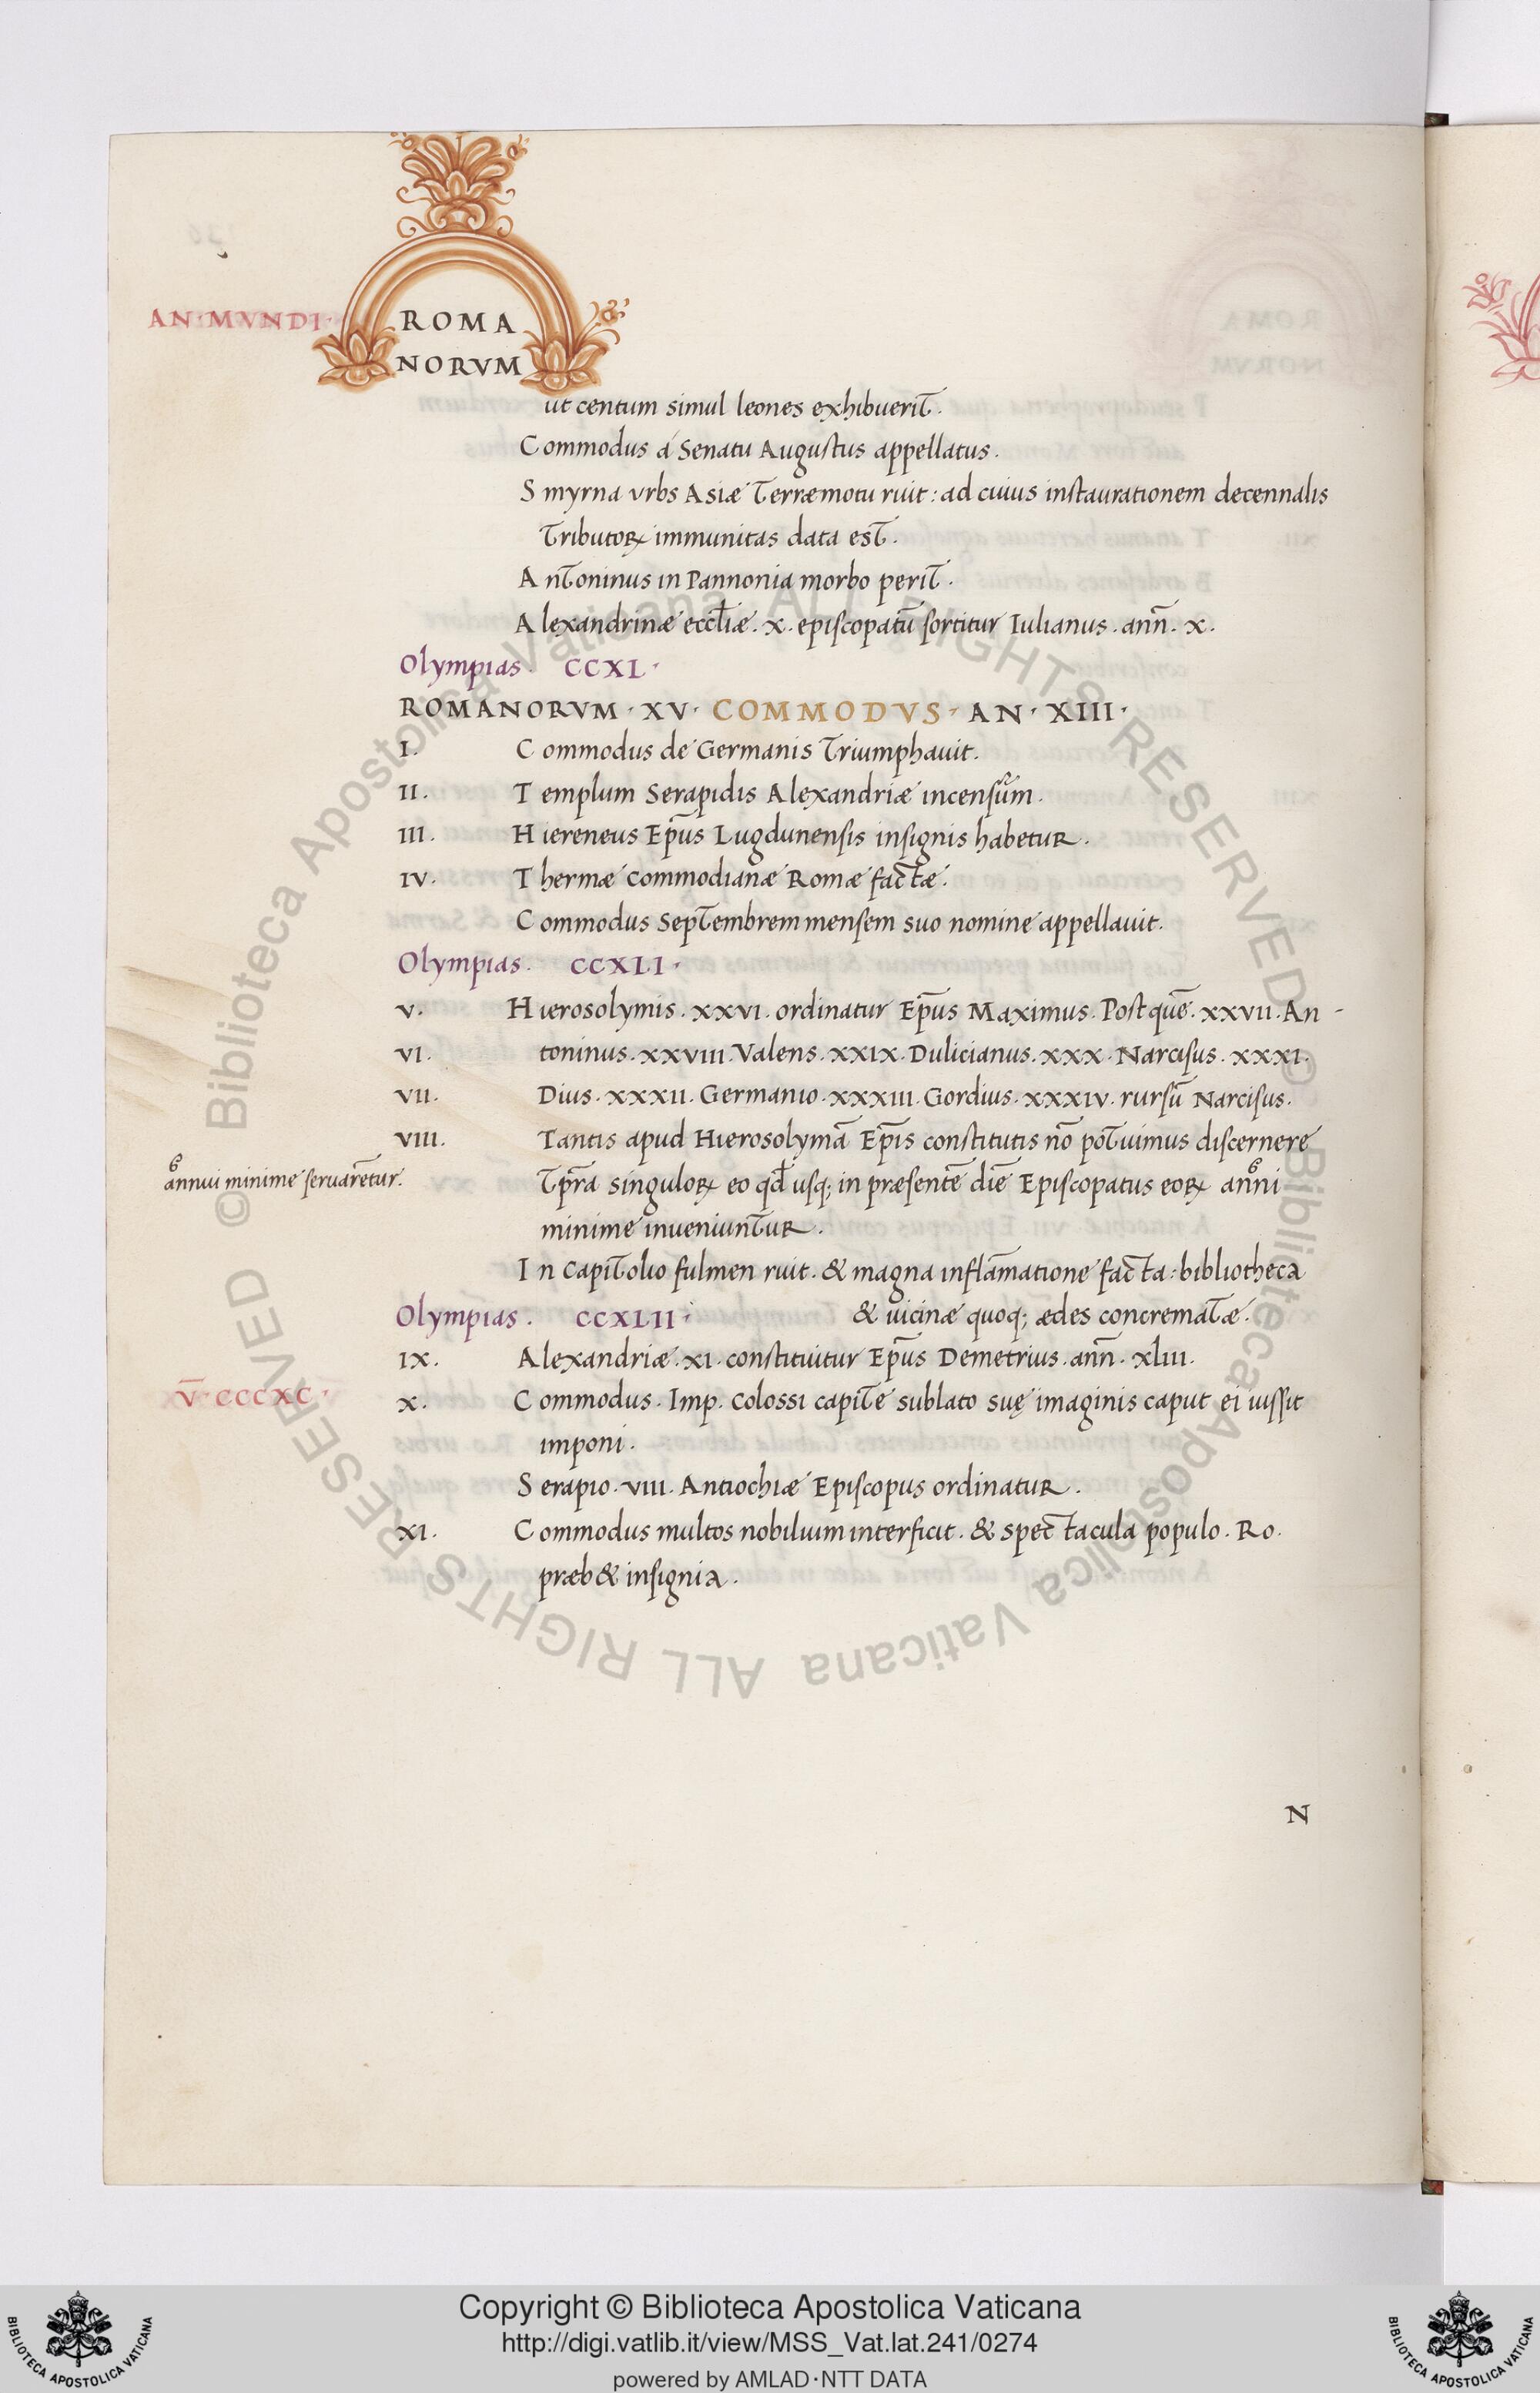 AN·MVNDI·
ROMA
NORVM
ut centum simul leones exhibuerit.
Commodus á Senatu Augustus appellatus.
Smyrna vrbs Asiæ Terræmotu ruit: ad cuius instaurationem decennalis
Tributoꝝ immunitas data est.
Antoninus in Pannonia morbo perit.
Alexandrinæ eccl̄iæ. x. episcopatū sortitur Iulianus. ann̄. x.
Olympias. CCXL·
ROMANORVM · XV · COMMODVS · AN · XIII ·
I. Commodus de Germanis Triumphauit.
II. Templum Serapidis Alexandriæ incensum.
III. Hiereneus Ep̄us Lugdunensis insignis habetur.
IV. Thermæ Commodianæ Romæ factæ.
Commodus Septembrem mensem suo nomine appellauit.
Olympias. CCXLI·
V. Hierosolymis. xxvi. ordinatur Ep̄us Maximus. Post quē. xxvii. An-
VI. toninus. xxviii. Valens. xxix. Dulicianus. xxx. Narcisus. xxxi.
VII. Dius. xxxii. Germanio. xxxiii. Gordius. xxxiv. rursū Narcisus.
VIII. Tantis apud Hierosolymā Ep̄is constitutis nō potuimus discernere
annui minime seruarētur.
Tp̄ra singuloꝝ eo qd̄ usq; in præsentē diē Episcopatus eoꝝ anni
minime inueniuntur.
In Capitolio fulmen ruit. & magna inflāmatione facta: bibliotheca
Olympias. CCXLII· & uicinæ quoq; ædes concrematæ.
IX. Alexandriæ. xi. constituitur Ep̄us Demetrius. ann̄. xliii.
V̄·CCCXC·
X. Commodus. Imp. Colossi capite sublato suę imaginis caput ei iussit
imponi.
Serapio. viii. Antiochiæ Episcopus ordinatur.
XI. Commodus multos nobilium interficit. & spectacula populo. Ro.
præb& insignia.
N
© Biblioteca Apostolica Vaticana ALL RIGHTS RESERVED
© Biblioteca Apostolica Vaticana ALL RIGHTS RESERVED
BIBLIOTECA APOSTOLICA VATICANA
Copyright © Biblioteca Apostolica Vaticana
http://digi.vatlib.it/view/MSS_Vat.lat.241/0274
powered by AMLAD·NTT DATA
BIBLIOTECA APOSTOLICA VATICANA